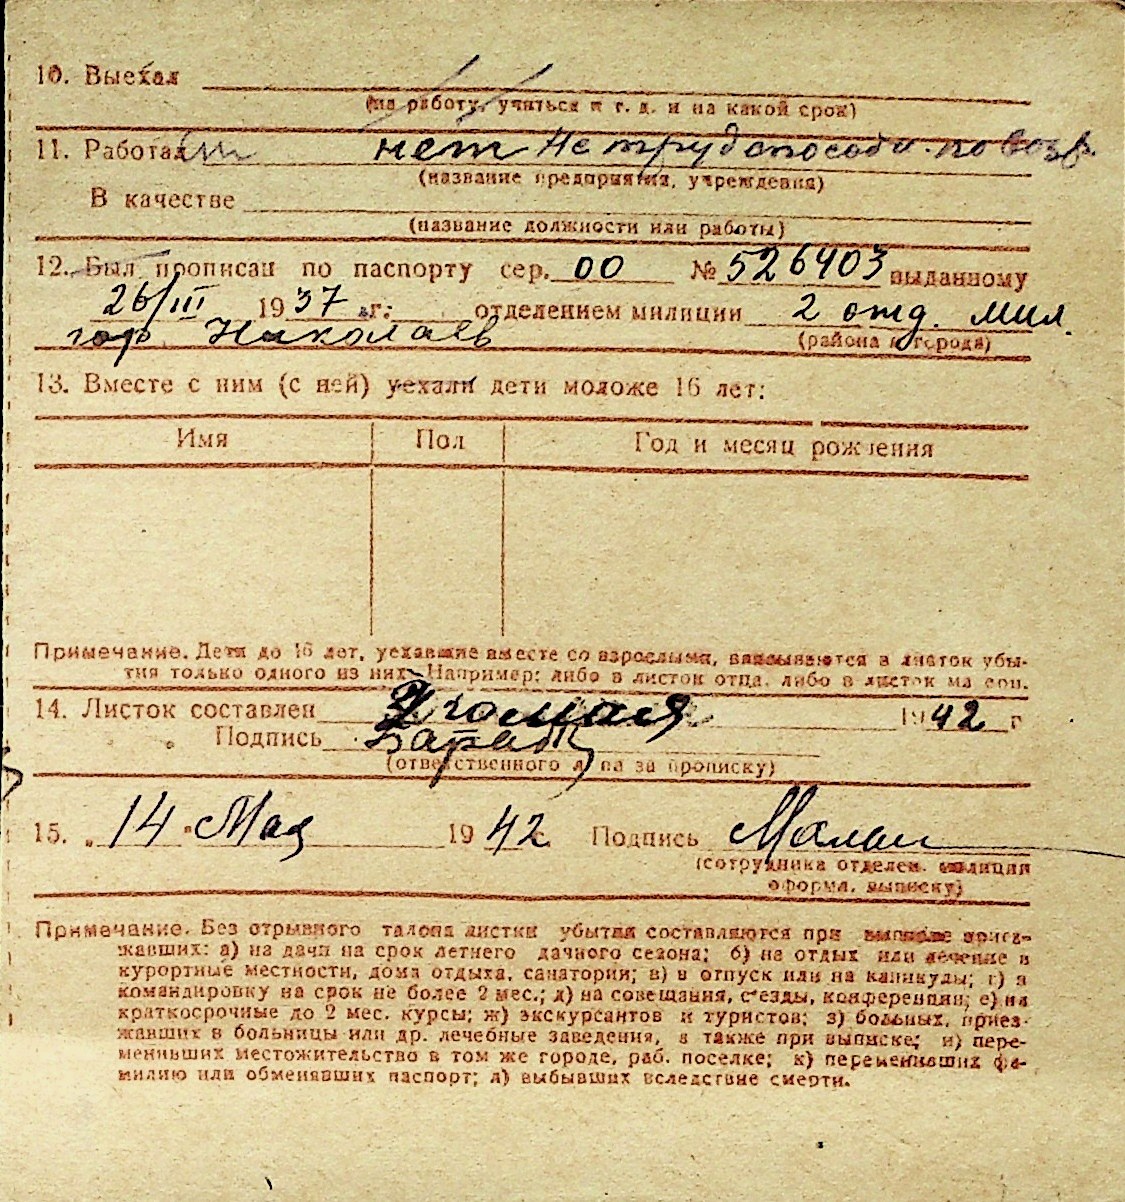 10. Выехал
(на работу, учиться и т. д. и на какой срок)
11. Работал нет Нетрудоспособн. по возр.
(название предприятия, учреждения)
В качестве
(название должности или работы)
12. Был прописан по паспорту сер. 00 № 526403 выданному
26/III 1937 г. отделением милиции 2 отд. мил.
гор. Николаев (района и города)
13. Вместе с ним (с ней) уехали дети моложе 16 лет:
Имя Пол Год и месяц рождения
Примечание. Дети до 16 лет, уехавшие вместе со взрослыми, вписываются в листок убы-
тия только одного из них. Например: либо в листок отца, либо в листок матери.
14. Листок составлен 1942 г
Подпись
(ответственного лица за прописку)
15. „14" Мая 1942 г. Подпись
(сотрудника отделен. милиции
оформл. выписку)
Примечание. Без отрывного талона листки убытия составляются при выписке приез-
жавших: а) на дачи на срок летнего дачного сезона; б) на отдых или лечение в
курортные местности, дома отдыха, санатории; в) в отпуск или на каникулы; г) в
командировку на срок не более 2 мес.; д) на совещания, съезды, конференции; е) на
краткосрочные до 2 мес. курсы; ж) экскурсантов и туристов; з) больных, приез-
жавших в больницы или др. лечебные заведения, а также при выписке; и) пере-
менивших местожительство в том же городе, раб. поселке; к) переменивших фа-
милию или обменявших паспорт; л) выбывших вследствие смерти.